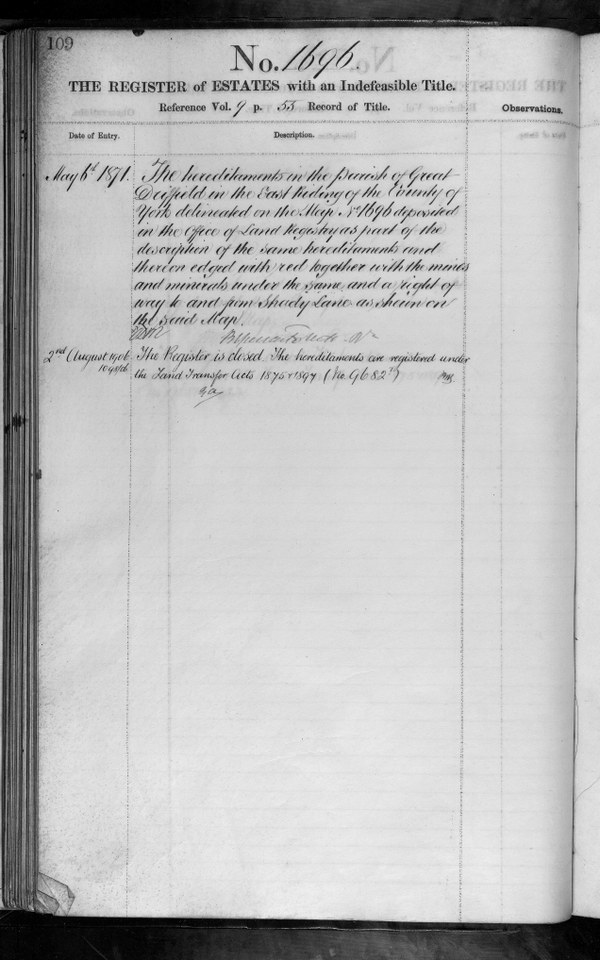 109
No. 1696.
THE REGISTER of ESTATES with an Indefeasible Title.
Reference Vol. 9 p. 53 Record of Title.
Observations.
Date of Entry.
Description.
May 6th 1871. The hereditaments in the Parish of Great
Driffield in the East Riding of the County of
York delineated on the Map No 1696 deposited
in the Office of Land Registry as part of the
description of the same hereditaments and
thereon edged with red together with the mines
and minerals under the same and a right of
way to and from Shady Lane as shewn on
the said Map.
2nd August 1906 The Register is closed. The hereditaments are registered under
the Land Transfer Acts 1875 & 1897 (No. 9682)